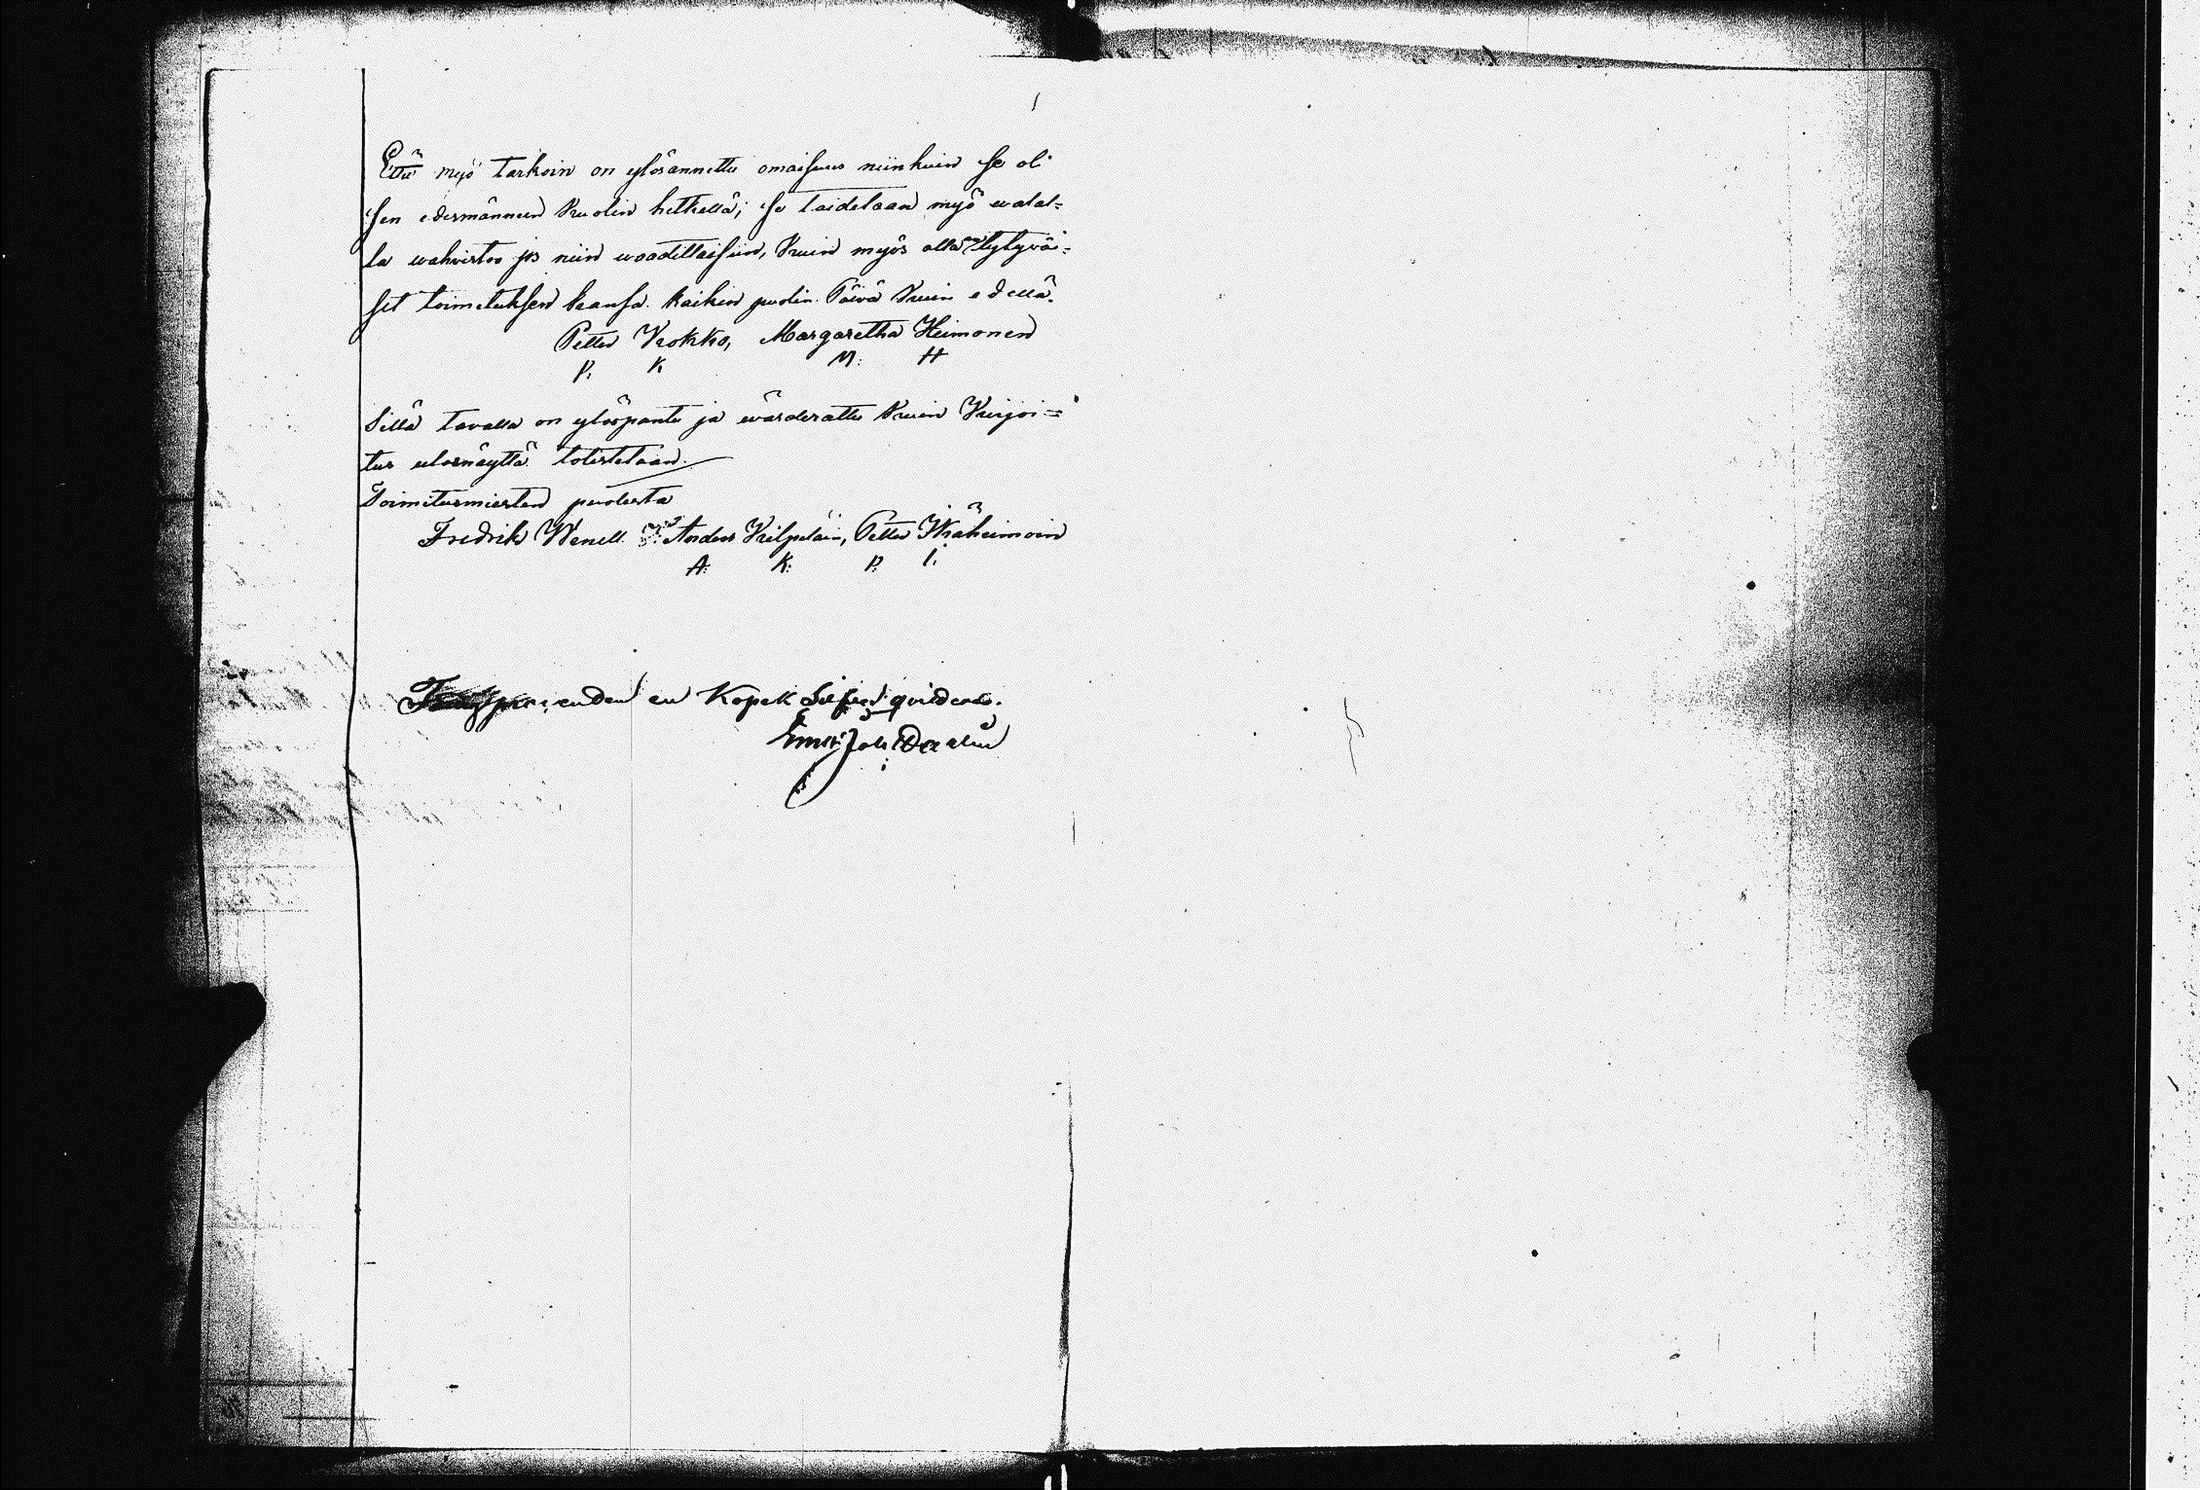 Että myö tarkoin on ylösannettu omaisuus niinkuin se oli
sen edesmänneen kuolin hetkellä; se taidetaan myö walal=
la wahvistoo jos niin waadittaisiin, kuin myös olla tytyväi=
set toimituksen kansa. kaikin puolin. Päivä kuin edellä.
Petter Krokko, Margaretha Heimonen
P. K. M: H
Sillä tavalla on ylöspantu ja wärderattu kuin Kirjoi=
tus ulosnäyttä totistetaan.
Toimitusmiesten puolesta
Fredrik Wenell Anders Kilpeläin, Petter Ikäheimoin
A: K: P: I:
en Kopek qvitteras.